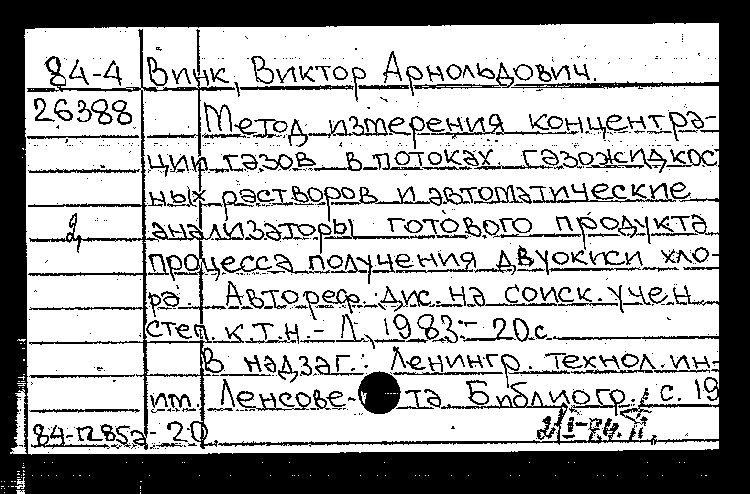 84-4 Винк, Виктор Арнольдович.
26388 Метод измерения концентра-
ции газов в потоках газожидкос
ных растворов и автоматические
2, анализаторы готового продукта
процесса получения двуокиси хло-
ра. Автореф. дис. на соиск. учен
степ. к.т.н. - Л., 1983. - 20 с.
В надзаг.: Ленингр. технол. ин-
т им. Ленсове- та. Библиогр.: с. 19
84-12852 - 20.